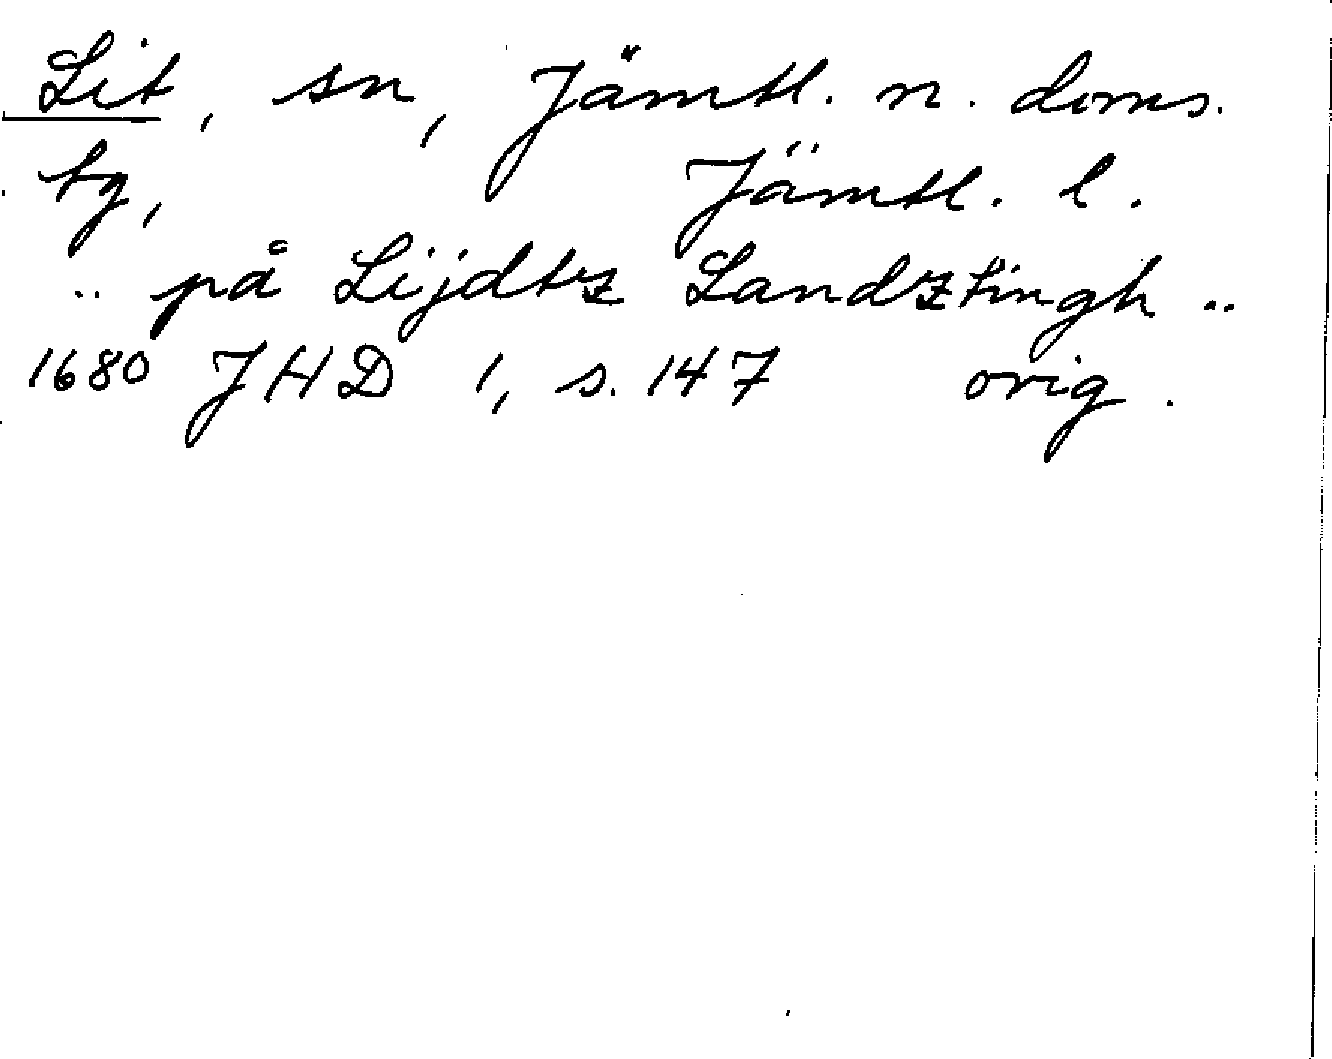 Lit, sn, Jämtl. n. doms.
tg, Jämtl. l.
.. på Lijdtz Landztingh ..
1680 JHD 1, s. 147 orig.